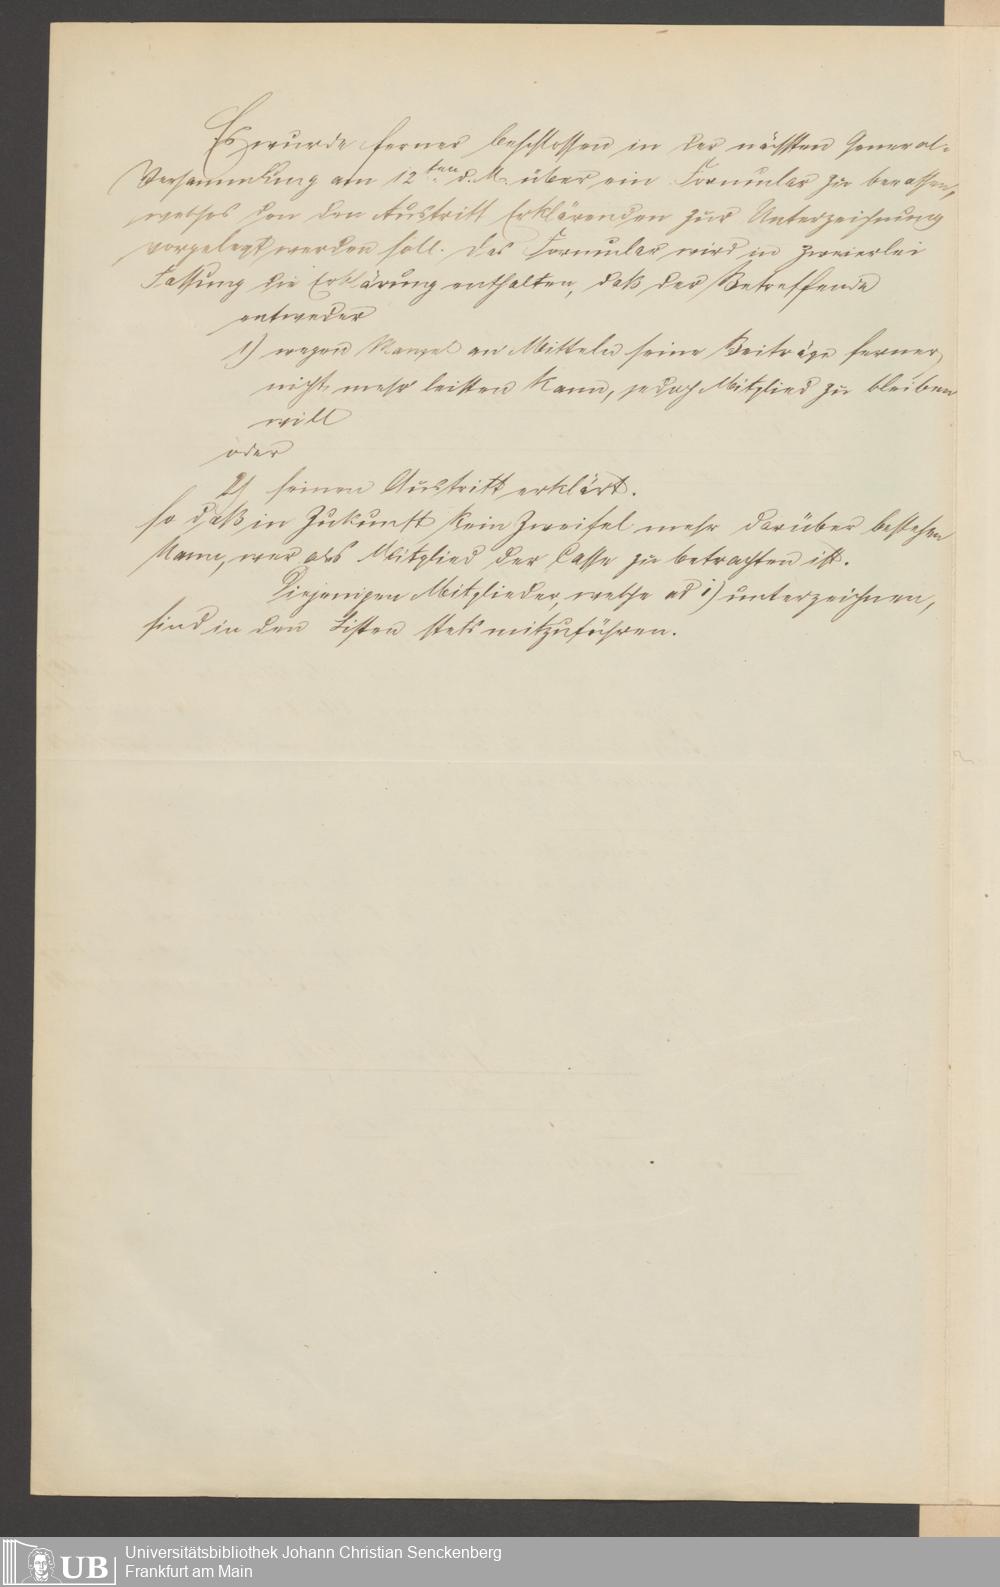 Es wurde ferner beschlossen in der nächsten General-
Versammlung am 12ten d. M. über ein Formular zu berathen,
welches den den Austritt Erklärenden zur Unterzeichnung
vorgelegt werden soll. Das Formular wird in zweierlei
Fassung die Erklärung enthalten, daß der Betreffende
entweder
1) wegen Mangel an Mitteln seine Beiträge ferner
nicht mehr leisten kann, jedoch Mitglied zu bleiben
will
oder
2) seinen Austritt erklärt.
so daß in Zukunft kein Zweifel mehr darüber bestehen
kann, wer als Mitglied der Casse zu betrachten ist.
Diejenigen Mitglieder, welche ad 1) unterzeichnen,
sind in den Listen stets mitzuführen.
UB
Universitätsbibliothek Johann Christian Senckenberg
Frankfurt am Main